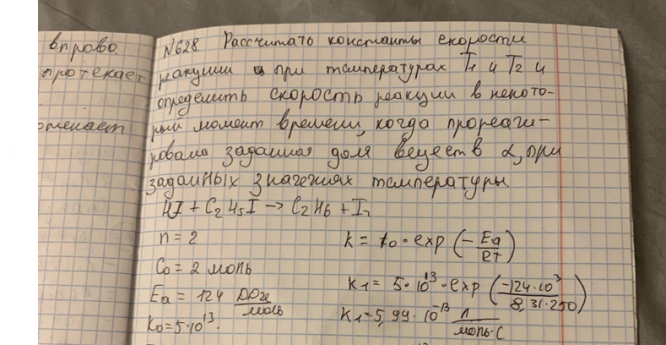 вправо
протекает
№628 Рассчитать константы скорости
реакции при температурах T1 и T2 и
определить скорость реакции в некото-
рый момент времени, когда прореаги-
ровала заданная доля веществ α, при
заданных значениях температуры.
HI + C2H5I → C2H6 + I2
n = 2
C0 = 2 моль
Ea = 124 Дж/моль
k0 = 5·10^13.
k = k0 · exp (-Ea/RT)
k1 = 5·10^13 · exp (-124·10^3/8,31·250)
k1 = 5,99·10^-13 л/моль·с